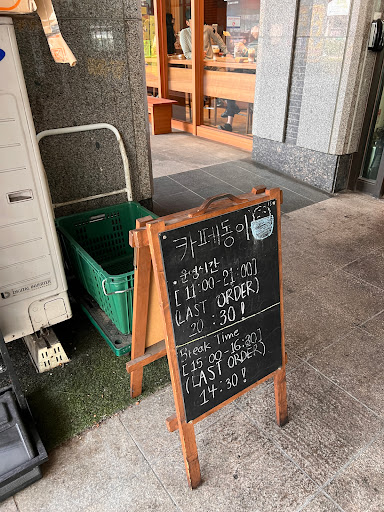 카페동이
• 운영시간
[11:00-21:00]
(LAST ORDER)
20:30!
Break Time
[15:00-16:30]
(LAST ORDER)
14:30!